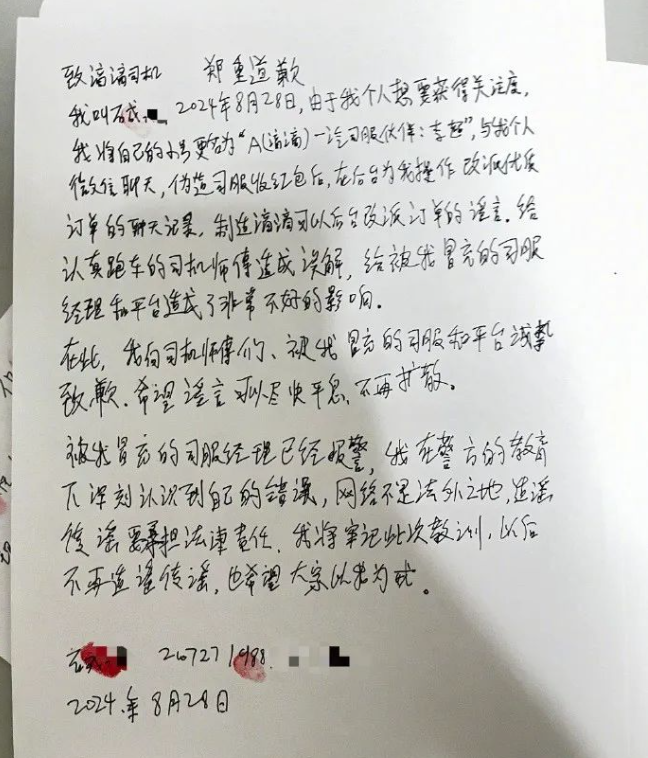 致滴滴司机 郑重道歉
我叫石成 2024年8月28日,由于我个人想要获得关注度,
我将自己的小号更名为“A(滴滴)一冷司服伙伴:李超”,与我个人
微信聊天,伪造司服收红包后,在后台为我操作改派优质
订单的聊天记录,制造滴滴可以后台改派订单的谣言.给
认真跑车的司机师傅造成误解,给被我冒充的司服
经理和平台造成了非常不好的影响.
在此,我向司机师傅们、被我冒充的司服和平台诚挚
致歉.希望谣言可以尽快平息、不再扩散。
被我冒充的司服经理已经报警,我在警方的教育
下深刻认识到自己的错误,网络不是法外之地,造谣
传谣要承担法律责任.我将牢记此次教训,以后
不再造谣传谣,也希望大家以我为戒。
267271988.
2024.年8月28日